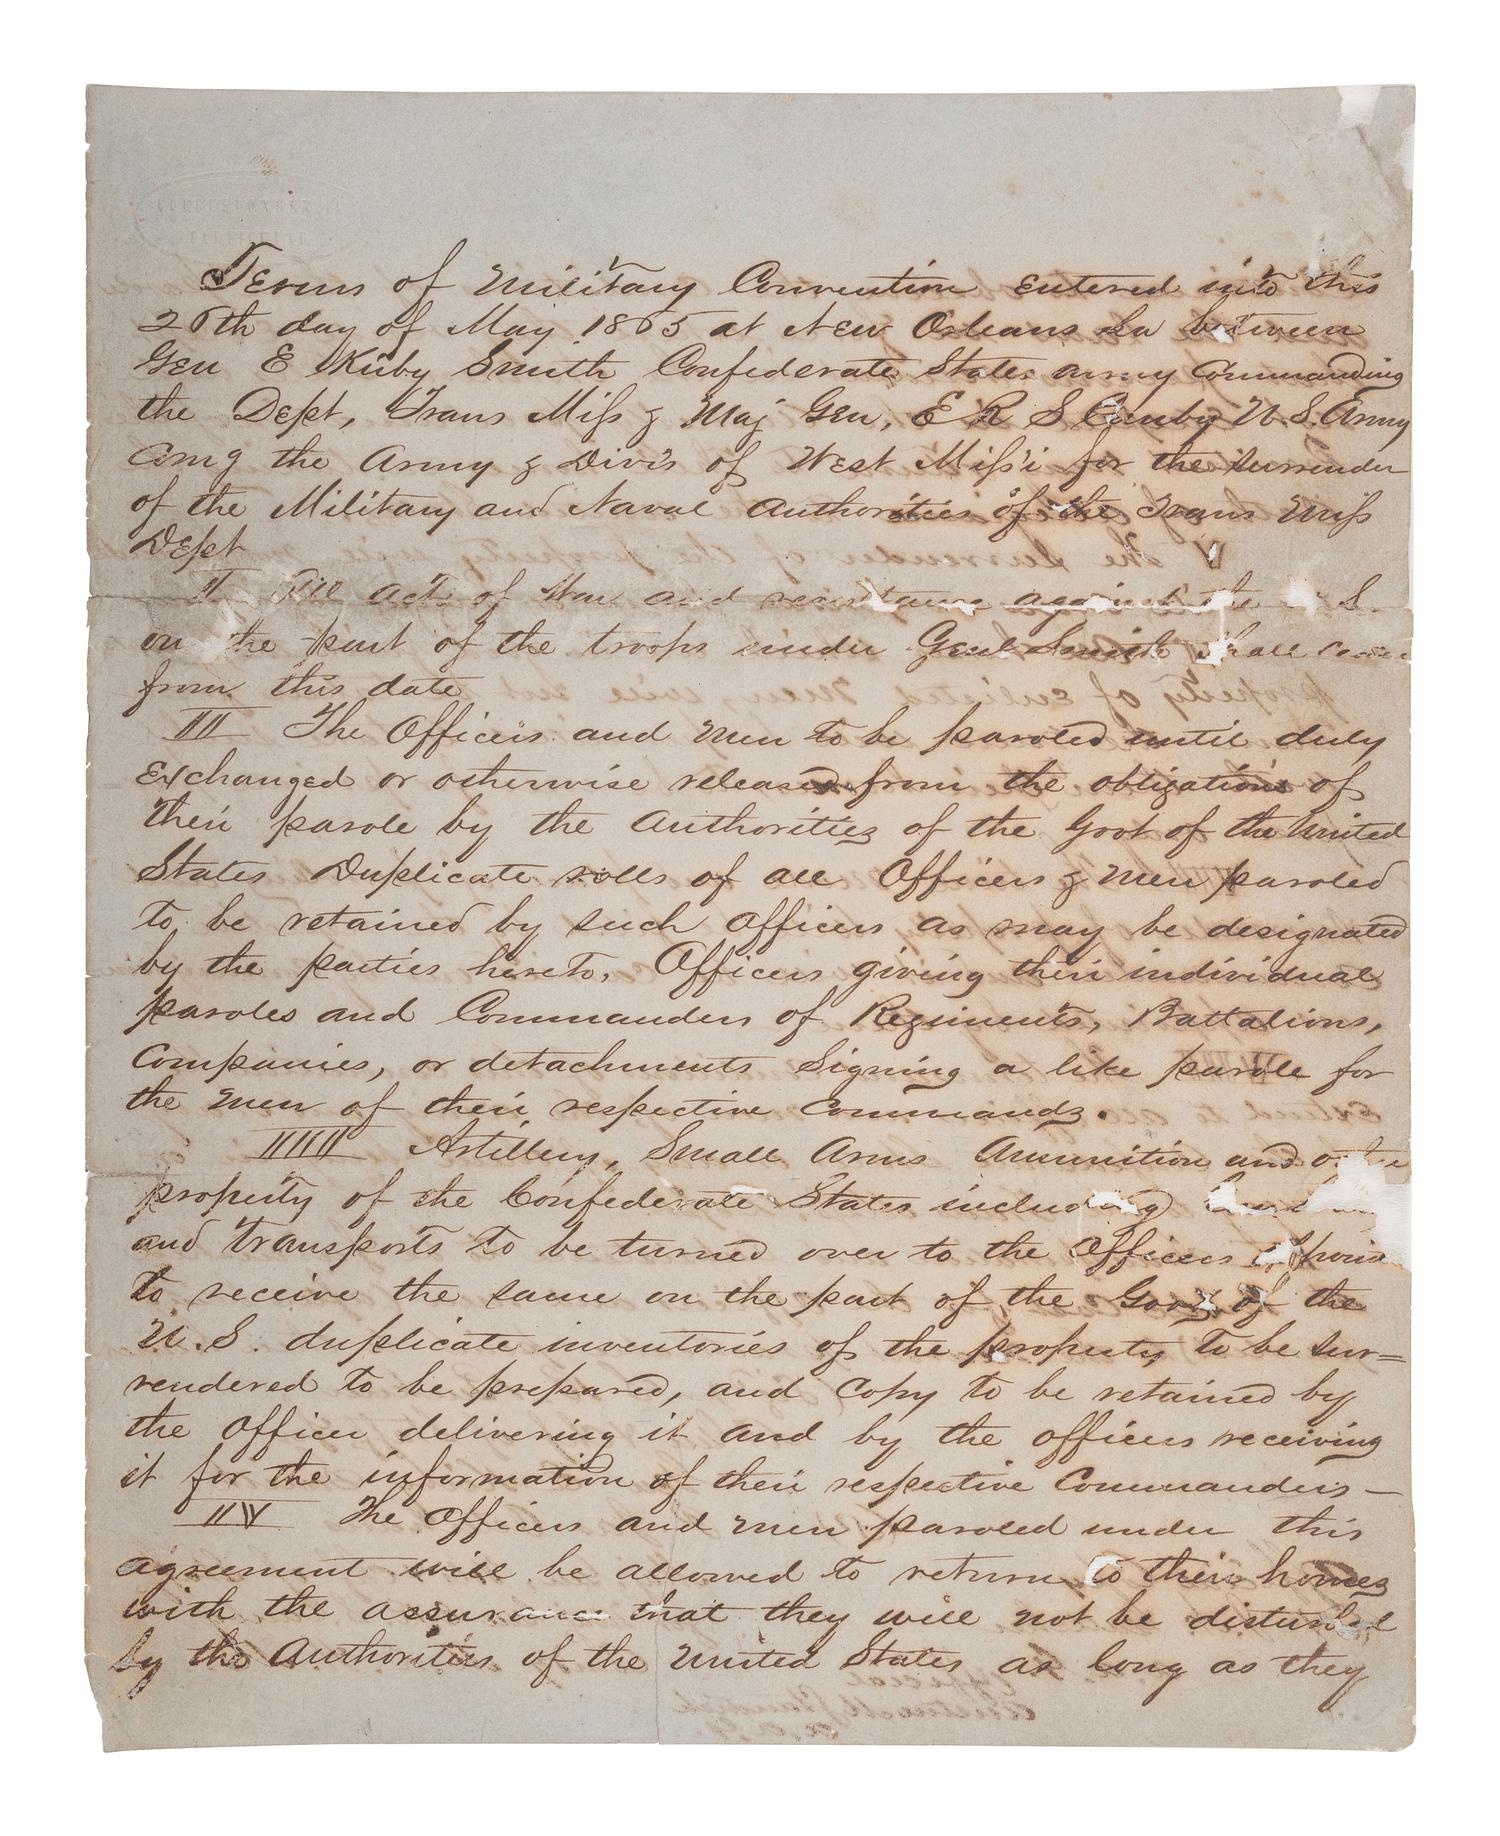 Terms of Military Convention entered into this
26th day of May 1865 at New Orleans La between
Gen E Kirby Smith Confederate States army Commanding
the Dept, Trans Miss & Maj Gen, E R S Canby U.S. Army
Comg the Army & Divis of West Miss'i for the surrender
of the Military and Naval Authorities of the Trans Miss
Dept
I All acts of War and resistance against the S.
on the part of the troops under Genl Smith shall cease
from this date
II The Officers and men to be paroled until duly
Exchanged or otherwise released from the obligations of
their parole by the Authorities of the Govt of the United
States Duplicate rolls of all Officers & men paroled
to be retained by such officers as may be designated
by the parties hereto, Officers giving their individual
paroles and Commanders of Regiments, Battalions,
Companies, or detachments Signing a like parole for
the men of their respective Commands.
III Artillery, Small Arms Ammunition and other
property of the Confederate States including
and transports to be turned over to the Officers
to receive the same on the part of the Govt of the
U.S. duplicate inventories of the property to be sur=
rendered to be prepared, and Copy to be retained by
the Officer delivering it and by the officers receiving
it for the information of their respective Commanders —
IV The Officers and men paroled under this
agreement will be allowed to return to their homes
with the assurance that they will not be disturbed
by the Authorities of the United States as long as they